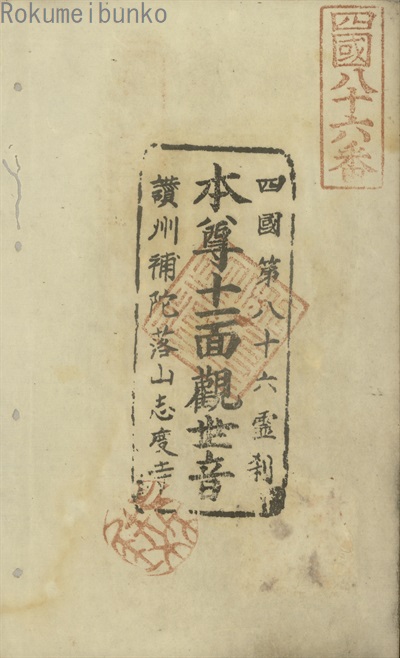 Rokumeibunko
四國八十六番
四國第八十六霊刹
本尊十一面觀世音
讃州補陀落山志度寺